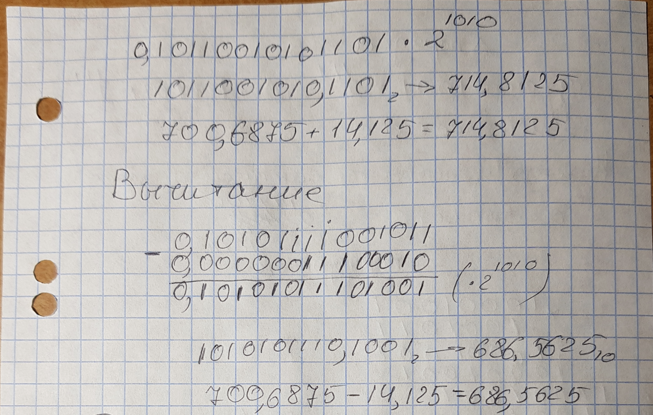 0,10110010101101 · 2^1010
1011001010,1101₂ → 714,8125
700,6875 + 14,125 = 714,8125
Вычитание
- 0,10101111001011
0,00000011100010
0,10101011101001 (·2^1010)
1010101110,1001₂ → 686,5625₁₀
700,6875 - 14,125 = 686,5625